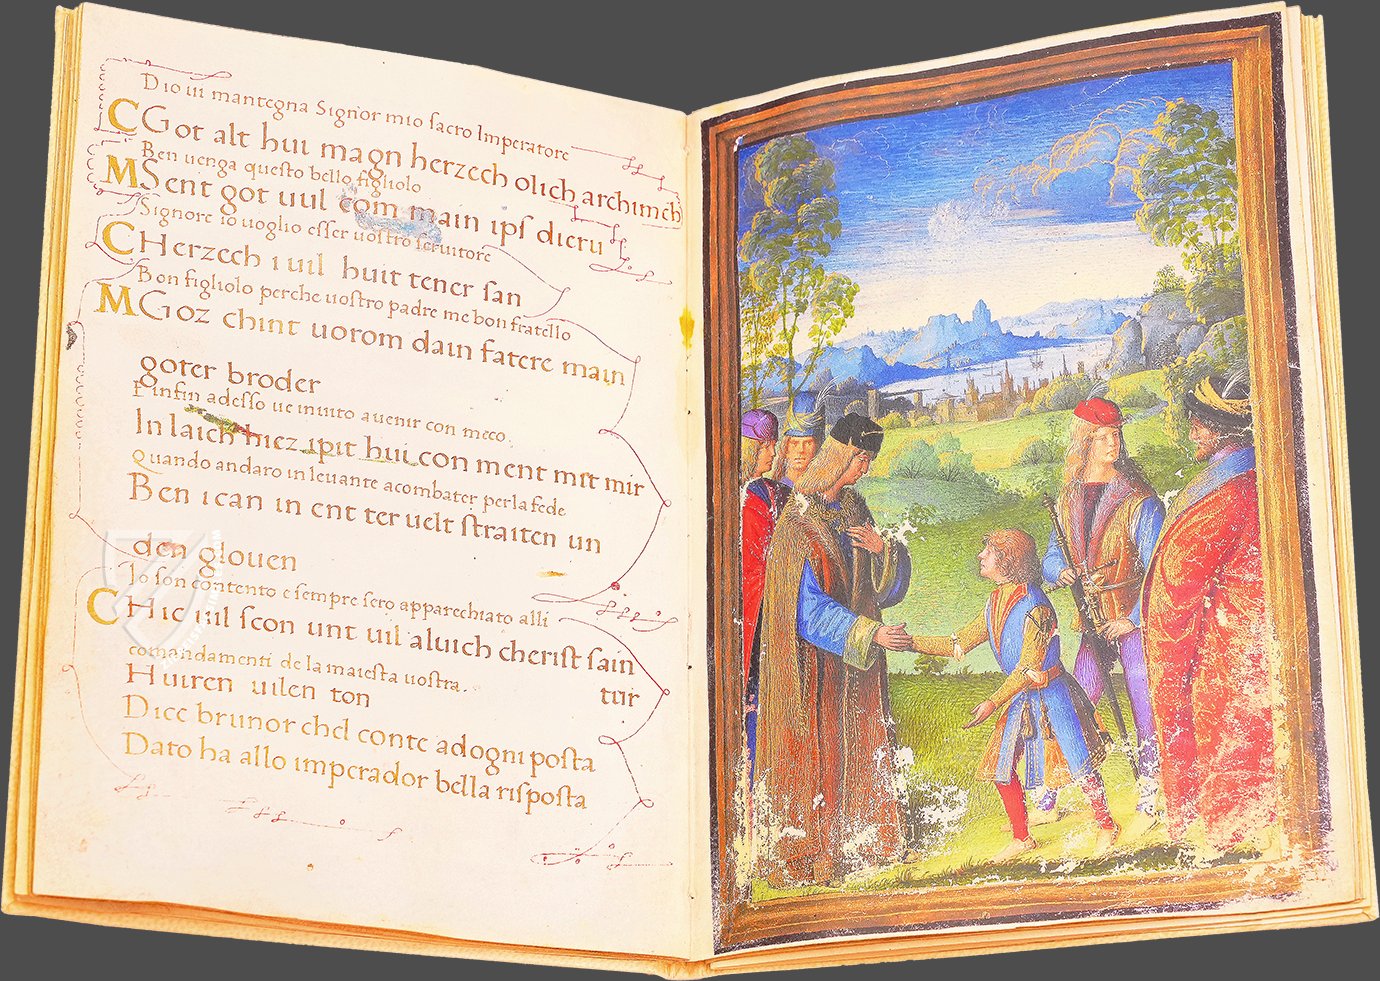 Dio ui mantegna Signor mio sacro Imperatore
C Got alt hui magn herzech olich archimch
Ben uenga questo bello figliolo
M Sent got uuil com main ips dieru
Signore io uoglio esser uostro seruitore
C Herzech i uil huit tener san
Bon figliolo perche uostro padre me bon fratello
M Goz chint uorom dain fatere main
goter broder
Finfin adesso ue inuito auenir con meco.
In laich hiez ipit hui con ment mit mir
Quando andaro in leuante acombater perla fede
Ben i can in ent ter uelt straiten un
den glouen
Io son contento e sempre sero apparechiato alli
C Hic uil scon unt uil aluich cherist sain
comandamenti de la maiesta uostra.
Huiren uilen ton tur
Dice brunor chel conte adogni posta
Dato ha allo imperador bella risposta